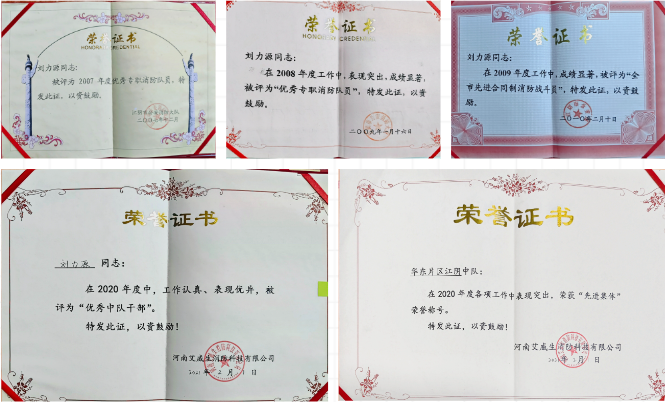 荣誉证书
HONORARY CREDENTIAL
刘力源同志:
被评为 2007 年度优秀专职消防队员,特
发此证,以资鼓励。
荣誉证书
HONORARY CREDENTIAL
刘力源同志:
在 2008 年度工作中,表现突出,成绩显著,
被评为“优秀专职消防队员”,特发此证,以资
鼓励。
二〇〇九年一月十六日
荣誉证书
刘力源同志:
在 2009 年度工作中,成绩显著,被评为“全
市先进合同制消防战斗员”,特发此证,以资鼓
励。
二〇一〇年二月十日
荣誉证书
刘力源 同志:
在 2020 年度中,工作认真、表现优异,被
评为“优秀中队干部”。
特发此证,以资鼓励!
河南艾威生消防科技有限公司
荣誉证书
华东片区江阴中队:
在 2020 年度各项工作中表现突出,荣获“先进集体”
荣誉称号。
特发此证,以资鼓励!
河南艾威生消防科技有限公司